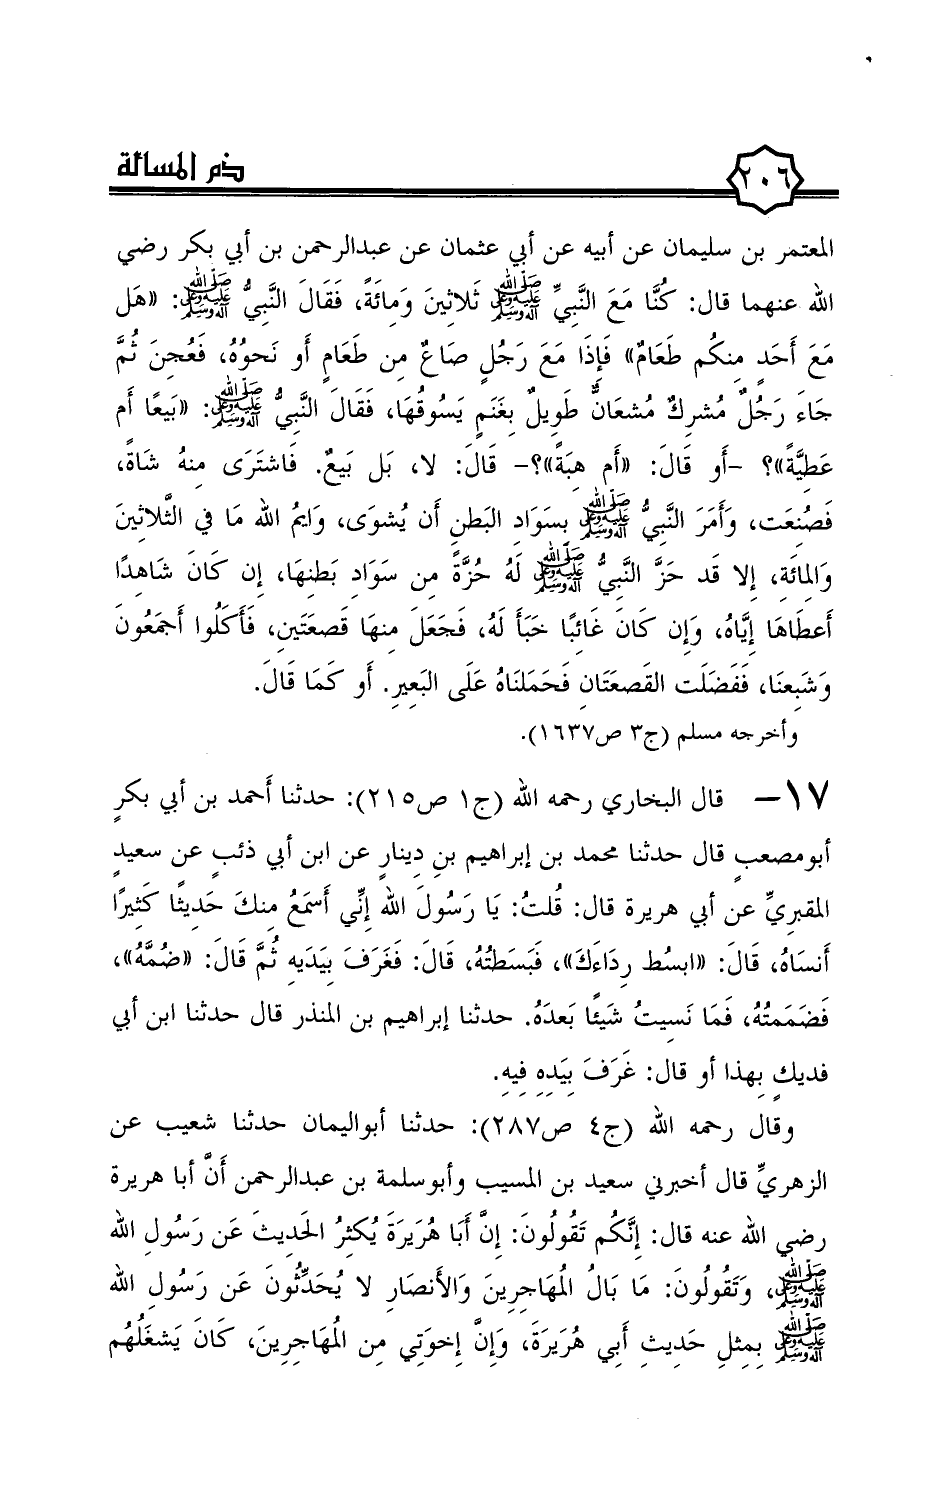 ذم المسألة
٢٠٦
المعتمر بن سليمان عن أبيه عن أبي عثمان عن عبدالرحمن بن أبي بكر رضي
الله عنهما قال: كُنَّا مَعَ النَّبِيِّ ﷺ ثَلاثِينَ وَمِائَةً، فَقَالَ النَّبِيُّ ﷺ: «هَل
مَعَ أَحَدٍ مِنكُم طَعَامٌ» فَإِذَا مَعَ رَجُلٍ صَاعٌ مِن طَعَامٍ أَو نَحوُهُ، فَعُجِنَ ثُمَّ
جَاءَ رَجُلٌ مُشرِكٌ مُشعَانٌّ طَوِيلٌ بِغَنَمٍ يَسُوقُهَا، فَقَالَ النَّبِيُّ ﷺ: «بَيعًا أَم
عَطِيَّةً»؟ -أَو قَالَ: «أَم هِبَةً»؟- قَالَ: لا، بَل بَيعٌ. فَاشتَرَى مِنهُ شَاةً،
فَصُنِعَت، وَأَمَرَ النَّبِيُّ ﷺ بِسَوَادِ البَطنِ أَن يُشوَى، وَايمُ الله مَا فِي الثَّلاثِينَ
وَالمِائَةِ، إِلا قَد حَزَّ النَّبِيُّ ﷺ لَهُ حُزَّةً مِن سَوَادِ بَطنِهَا، إِن كَانَ شَاهِدًا
أَعطَاهَا إِيَّاهُ، وَإِن كَانَ غَائِبًا خَبَأَ لَهُ، فَجَعَلَ مِنهَا قَصعَتَينِ، فَأَكَلُوا أَجمَعُونَ
وَشَبِعنَا، فَفَضَلَت القَصعَتَانِ فَحَمَلنَاهُ عَلَى البَعِيرِ. أَو كَمَا قَالَ.
وأخرجه مسلم (ج٣ ص١٦٣٧).
١٧- قال البخاري رحمه الله (ج١ ص٢١٥): حدثنا أحمد بن أبي بكرٍ
أبومصعبٍ قال حدثنا محمد بن إبراهيم بنِ دينارٍ عن ابن أبي ذئبٍ عن سعيدٍ
المقبريِّ عن أبي هريرة قال: قُلتُ: يَا رَسُولَ الله إِنِّي أَسمَعُ مِنكَ حَدِيثًا كَثِيرًا
أَنسَاهُ، قَالَ: «ابسُط رِدَاءَكَ»، فَبَسَطتُهُ، قَالَ: فَغَرَفَ بِيَدَيهِ ثُمَّ قَالَ: «ضُمَّهُ»،
فَضَمَمتُهُ، فَمَا نَسِيتُ شَيئًا بَعدَهُ. حدثنا إبراهيم بن المنذر قال حدثنا ابن أبي
فديكٍ بِهذا أو قال: غَرَفَ بِيَدِهِ فِيهِ.
وقال رحمه الله (ج٤ ص٢٨٧): حدثنا أبواليمان حدثنا شعيب عن
الزهريِّ قال أخبرني سعيد بن المسيب وأبوسلمة بن عبدالرحمن أنَّ أبا هريرة
رضي الله عنه قال: إِنَّكُم تَقُولُونَ: إِنَّ أَبَا هُرَيرَةَ يُكثِرُ الحَدِيثَ عَن رَسُولِ الله
ﷺ، وَتَقُولُونَ: مَا بَالُ المُهَاجِرِينَ وَالأَنصَارِ لا يُحَدِّثُونَ عَن رَسُولِ الله
ﷺ بِمِثلِ حَدِيثِ أَبِي هُرَيرَةَ، وَإِنَّ إِخوَتِي مِن المُهَاجِرِينَ، كَانَ يَشغَلُهُم